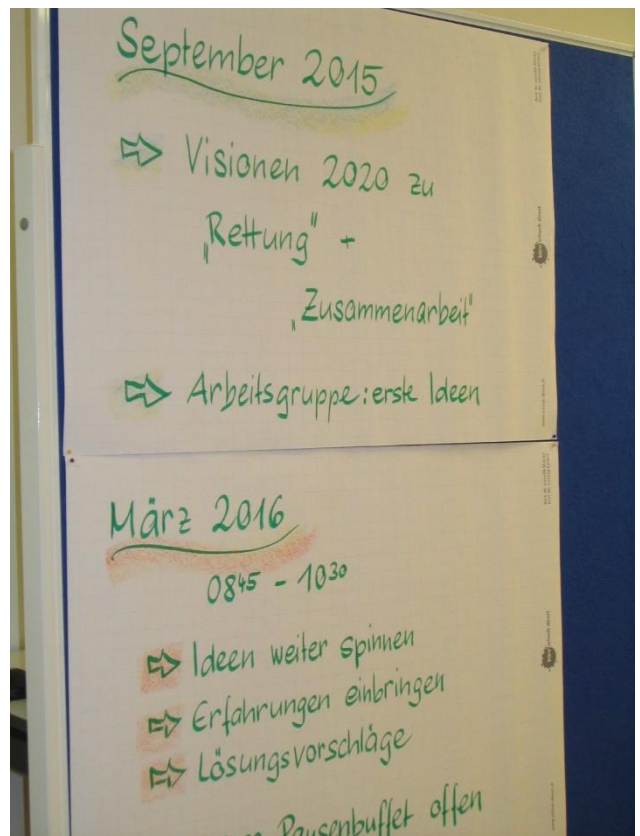 September 2015
⇨ Visionen 2020 zu
„Rettung" +
„Zusammenarbeit"
⇨ Arbeitsgruppe: erste Ideen
März 2016
08⁴⁵ - 10³⁰
⇨ Ideen weiter spinnen
⇨ Erfahrungen einbringen
⇨ Lösungsvorschläge
Pausenbuffet offen